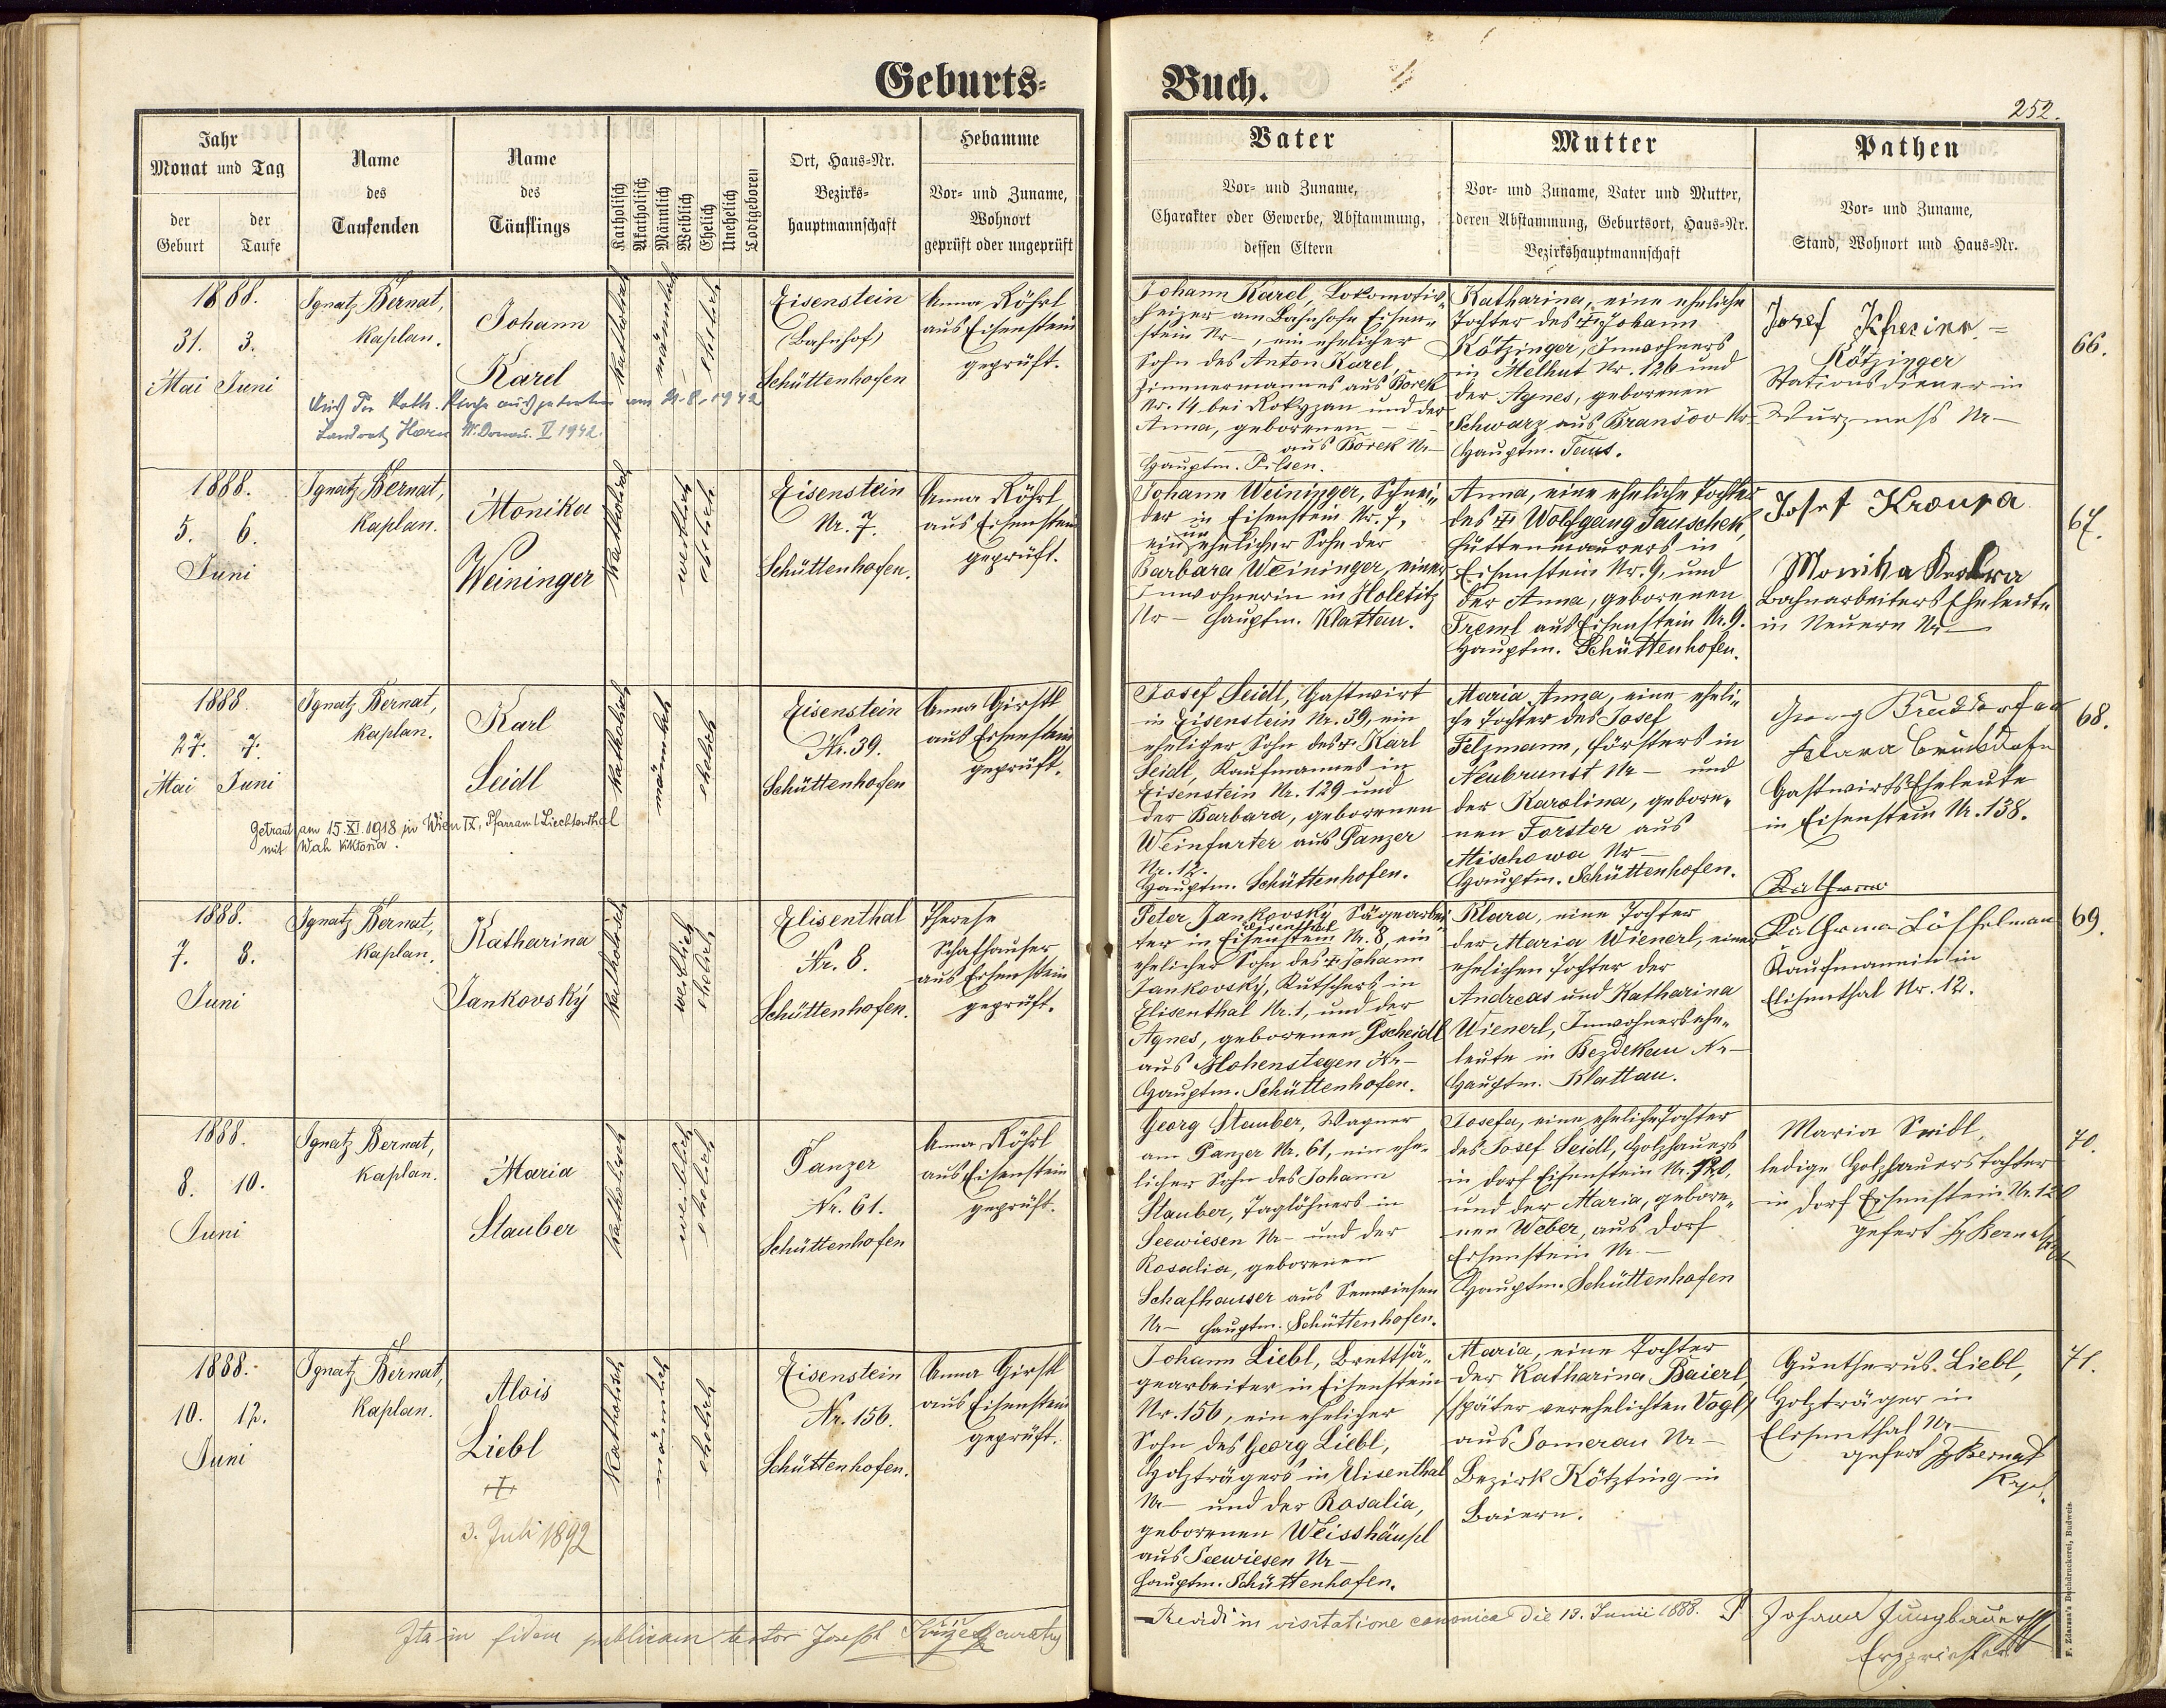 Geburts-
Buch.
252.
Jahr
Monat und Tag
der Geburt
der Taufe
Name
des
Taufenden
Name
des
Täuflings
Katholisch
Akatholisch
Männlich
Weiblich
Ehelich
Unehelich
Todtgeboren
Ort, Haus-Nr.
Bezirks-
hauptmannschaft
Hebamme
Vor- und Zuname,
Wohnort
geprüft oder ungeprüft
Vater
Vor- und Zuname,
Charakter oder Gewerbe, Abstammung,
dessen Eltern
Mutter
Vor- und Zuname, Vater und Mutter,
deren Abstammung, Geburtsort, Haus-Nr.
Bezirkshauptmannschaft
Pathen
Vor- und Zuname,
Stand, Wohnort und Haus-Nr.
1888.
31. 3.
Mai Juni
Ignatz Bernat,
Kaplan.
Johann
Karel
katholisch
männlich
ehelich
Eisenstein
(Bahnhof)
Schüttenhofen
Anna Röhrl
aus Eisenstein
geprüft.
Johann Karel, Lokomotiv-
heizer am Bahnhofe Eisen-
stein Nr –, ein ehelicher
Sohn des Anton Karel,
Zimmermannes aus Borek
Nr. 14 bei Rokyzan und der
Anna, geborenen – –
aus Borek Nr –
Hauptm. Pilsen.
Katharina, eine eheliche
Tochter des † Johann
Kötzinger, Inwohners
in Melhut Nr. 126 und
der Agnes, geborenen
Schwarz aus Branšov Nr –
Hauptm. Taus.
Josef
Kötzinger
Stationsdiener in
Wurzmess Nr –
66.
aus der kath. Kirche ausgetreten am 21.8.1942
Landrat Horn N. Donau. V 1942.
1888.
5. 6.
Juni
Ignatz Bernat,
Kaplan.
Monika
Weininger
katholisch
weiblich
ehelich
Eisenstein
Nr. 7.
Schüttenhofen.
Anna Röhrl
aus Eisenstein
geprüft.
Johann Weininger, Schnei-
der in Eisenstein Nr. 7,
ein unehelicher Sohn der
Barbara Weininger, einer
Inwohnerin in Holetitz
Nr – Hauptm. Klattau.
Anna, eine eheliche Tochter
des † Wolfgang Tauschek,
Hüttenmaurers in
Eisenstein Nr. 9, und
der Anna, geborenen
Treml aus Eisenstein Nr. 9.
Hauptm. Schüttenhofen.
Josef Kroupa
Monika
Bahnarbeiters Eheleute
in Neuern Nr –
67.
1888.
27. 7.
Mai Juni
Ignatz Bernat,
Kaplan.
Karl
Seidl
katholisch
männlich
ehelich
Eisenstein
Nr. 39.
Schüttenhofen
Anna Girstl
aus Eisenstein
geprüft.
Josef Seidl, Gastwirt
in Eisenstein Nr. 39, ein
ehelicher Sohn des † Karl
Seidl, Kaufmannes in
Eisenstein Nr. 129 und
der Barbara, geborenen
Weinfurter aus Panzer
Nr. 12.
Hauptm. Schüttenhofen.
Maria Anna, eine eheli-
che Tochter des Josef
Felzmann, Försters in
Neubrunst Nr – und
der Karolina, gebore-
nen Forster aus
Mischowa Nr –
Hauptm. Schüttenhofen.
Georg
Klara
Gastwirts Eheleute
in Eisenstein Nr. 138.
68.
Getraut am 15.XI.1918 in Wien IX, Pfarramt Liechtenthal
mit Wah Viktoria.
1888.
7. 8.
Juni
Ignatz Bernat,
Kaplan.
Katharina
Jankovský
katholisch
weiblich
ehelich
Elisenthal
Nr. 8.
Schüttenhofen.
Therese
Schafhauser
aus Eisenstein
geprüft.
Peter Jankovský Sägearbei-
ter in Eisenstein Elisenthal Nr. 8, ein
ehelicher Sohn des † Johann
Jankovský, Kutschers in
Elisenthal Nr. 1, und der
Agnes, geborenen Gscheidl
aus Hohenstegen Nr –
Hauptm. Schüttenhofen.
Klara, eine Tochter
der Maria Wienerl, einer
ehelichen Tochter der
Andreas und Katharina
Wienerl, Inwohnersehe-
leute in Bezdekau Nr –
Hauptm. Klattau.
Katharina
Katharina Löffelmann
Kaufmannin in
Elisenthal Nr. 12.
69.
1888.
8. 10.
Juni
Ignatz Bernat,
Kaplan.
Maria
Stauber
katholisch
weiblich
ehelich
Panzer
Nr. 61.
Schüttenhofen
Anna Röhrl
aus Eisenstein
geprüft.
Georg Stauber, Wagner
am Panzer Nr. 61, ein ehe-
licher Sohn des Johann
Stauber, Taglöhners in
Seewiesen Nr – und der
Rosalia, geborenen
Schafhauser aus Seewiesen
Nr – Hauptm. Schüttenhofen.
Josefa, eine eheliche Tochter
des Josef Seidl, Holzhauers
in Dorf Eisenstein Nr. 120,
und der Maria, gebore-
nen Weber, aus Dorf
Eisenstein Nr. –
Hauptm. Schüttenhofen
Maria Seidl,
ledige Holzhauerstochter
in Dorf Eisenstein Nr. 120
gefert Bernat
70.
1888.
10. 12.
Juni
Ignatz Bernat,
Kaplan.
Alois
Liebl
†
3. Juli 1892
katholisch
männlich
ehelich
Eisenstein
Nr. 156.
Schüttenhofen.
Anna Girstl
aus Eisenstein
geprüft.
Johann Liebl, Brettsä-
gearbeiter in Eisenstein
Nr. 156, ein ehelicher
Sohn des Georg Liebl,
Holzträgers in Elisenthal
Nr – und der Rosalia,
geborenen Weisshäupl
aus Seewiesen Nr –
Hauptm. Schüttenhofen.
Maria, eine Tochter
der Katharina Baierl
(später verehelichten Vogl)
aus Somerau Nr –
Bezirk Kötzting in
Baiern.
Guntherus Liebl,
Holzträger in
Elisenthal Nr –
gefert Bernat
Kapl.
71.
Ita in fidem publicam testor Joseph
Revidi in visitatione canonica die 13. Junii 1888.
Johann Jungbauer
Erzpriester
F. Zdarssa's Buchdruckerei, Budweis.